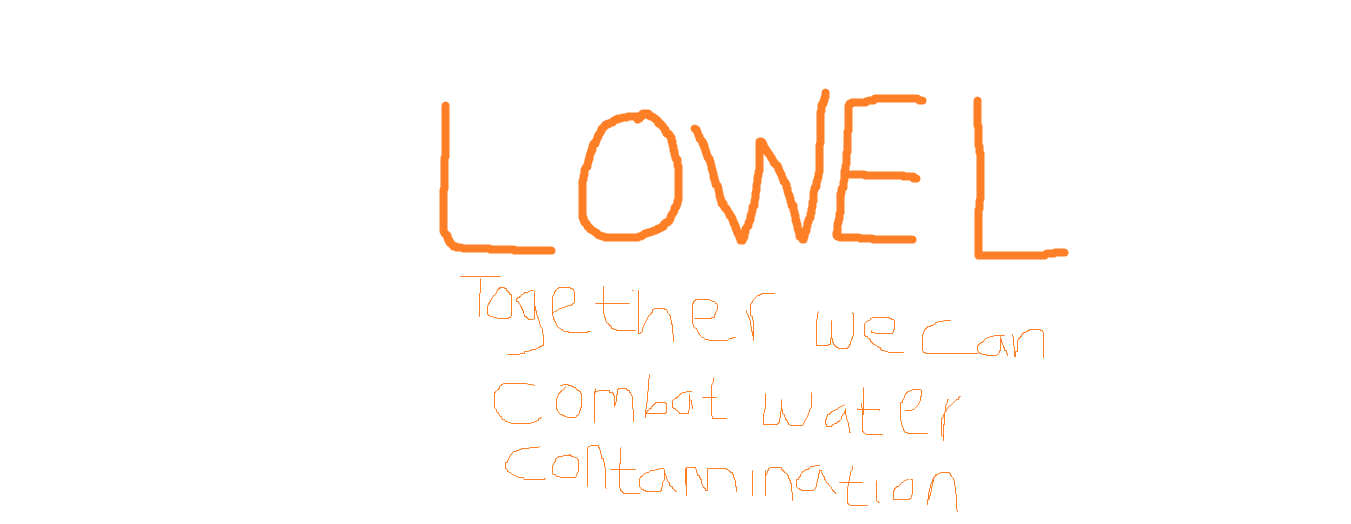 LOWEL
Together we can
combat water
contamination